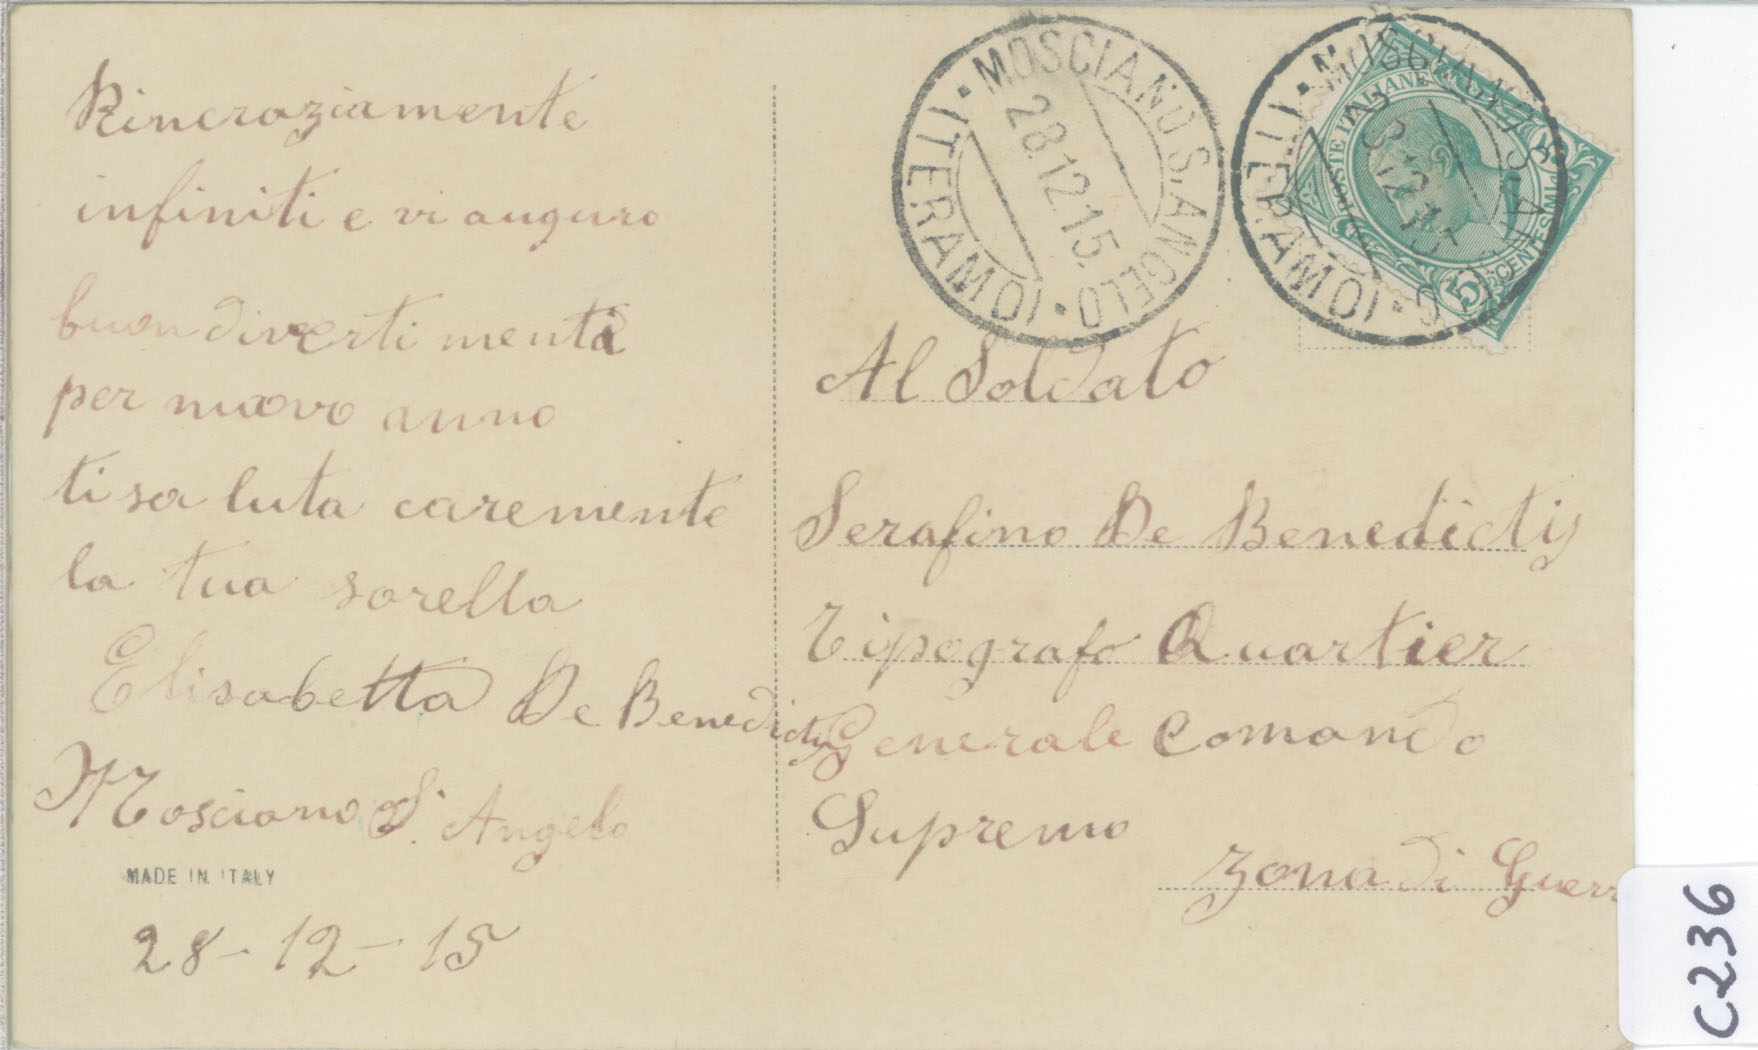 Rincraziamente
infiniti e vi auguro
buon divertimenti
per nuovo anno
ti saluta caremente
la tua sorella
Elisabetta De Benedictis
Mosciano S. Angelo
MADE IN ITALY
28-12-15
MOSCIANO S. ANGELO
(TERAMO)
28.12.15
MOSCIANO S. ANGELO
(TERAMO)
28.12.15
POSTE ITALIANE
CENTESIMI
5
Al Soldato
Serafino De Benedictis
Tipografo Quartier
Generale Comando
Supremo
Zona di Guerr
C236